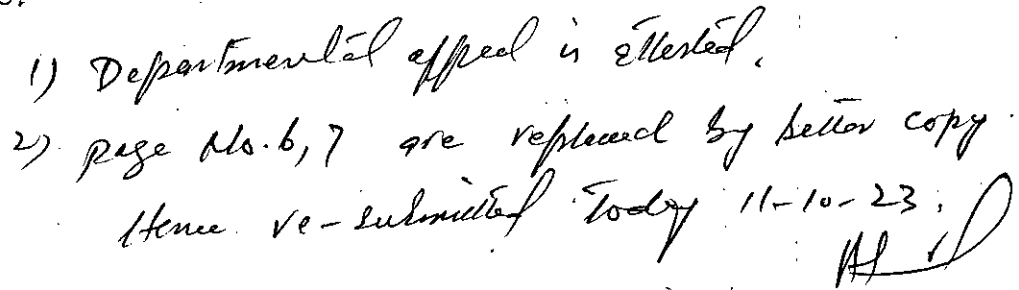 1) Departmental appeal is attested.
2) page No. 6, 7 are replaced by better copy.
Hence re-submitted Today 11-10-23.